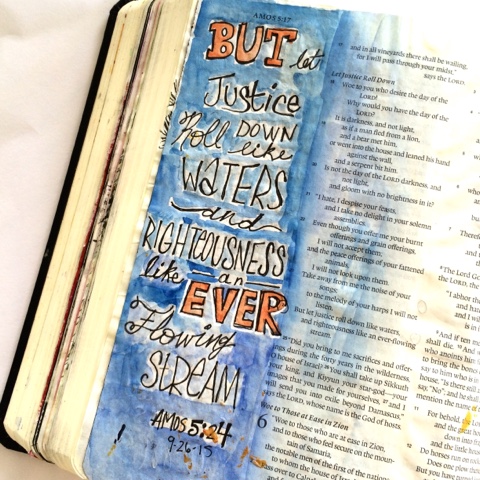 AMOS 5:17
BUT let
Justice
Roll DOWN
like
WATERS
and
RIGHTEOUSNESS
like an
EVER
Flowing
STREAM
AMOS 5:24
9-26-15
and in all vineyards there shall be wailing,
for I will pass through your midst,"
says the LORD.
Let Justice Roll Down
Woe to you who desire the day of the
LORD!
Why would you have the day of the
LORD?
It is darkness, and not light,
as if a man fled from a lion,
and a bear met him,
or went into the house and leaned his hand
against the wall,
and a serpent bit him.
Is not the day of the LORD darkness, and
not light,
and gloom with no brightness in it?
"I hate, I despise your feasts,
and I take no delight in your solemn
assemblies.
Even though you offer me your burnt
offerings and grain offerings,
I will not accept them;
and the peace offerings of your fattened
animals,
I will not look upon them.
Take away from me the noise of your
songs;
to the melody of your harps I will not
listen.
But let justice roll down like waters,
and righteousness like an ever-flowing
stream.
"Did you bring to me sacrifices and offer-
ings during the forty years in the wilderness,
O house of Israel? You shall take up Sikkuth
your king, and Kiyyun your star-god—your
images that you made for yourselves, and I
will send you into exile beyond Damascus,"
says the LORD, whose name is the God of hosts.
Woe to Those at Ease in Zion
6 "Woe to those who are at ease in Zion,
and to those who feel secure on the moun-
tain of Samaria,
the notable men of the first of the nations,
to whom the house of Israel